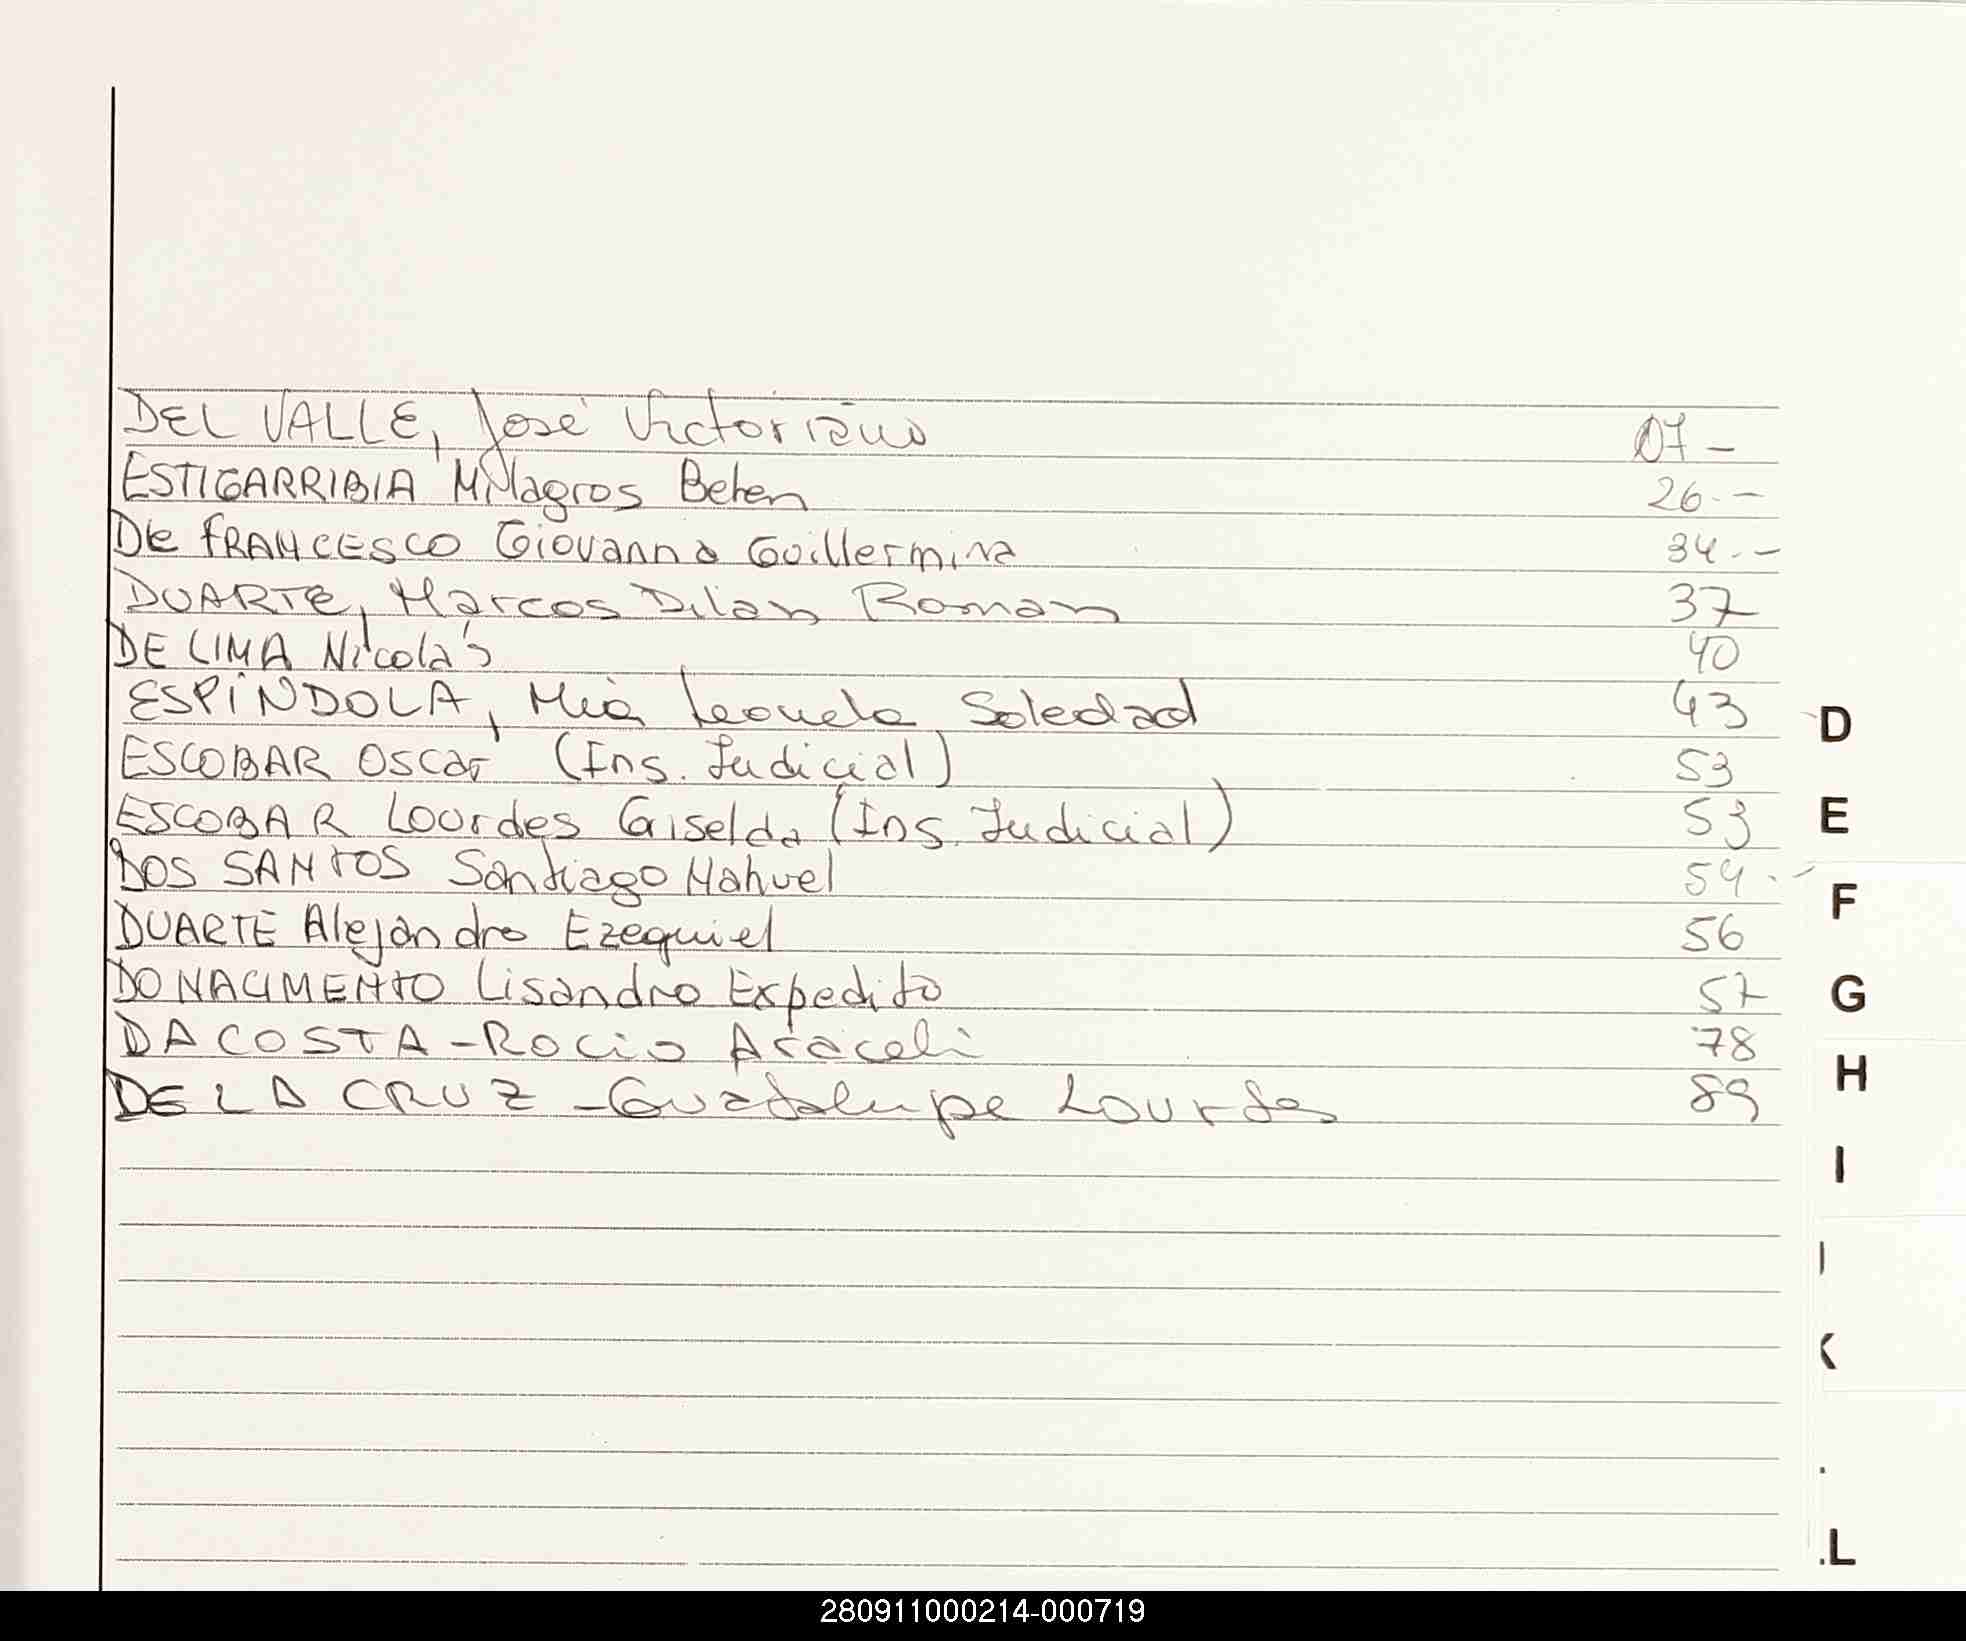 DEL VALLE, José Victoriano 07 -
ESTIGARRIBIA Milagros Belen 26. -
DE FRANCESCO Giovanna Guillermina 34. -
DUARTE, Marcos Dilan Roman 37
DE LIMA Nicolás 40
ESPÍNDOLA, Mia Leonela Soledad 43
ESCOBAR Oscar (Ins. Judicial) 53
ESCOBAR Lourdes Giselda (Ins. Judicial) 53
DOS SANTOS Santiago Nahuel 54. -
DUARTE Alejandro Ezequiel 56
DO NACIMENTO Lisandro Expedito 57
DA COSTA - Rocio Araceli 78
DE LA CRUZ - Guadalupe Lourdes 89
D
E
F
G
H
I
K
L
280911000214-000719